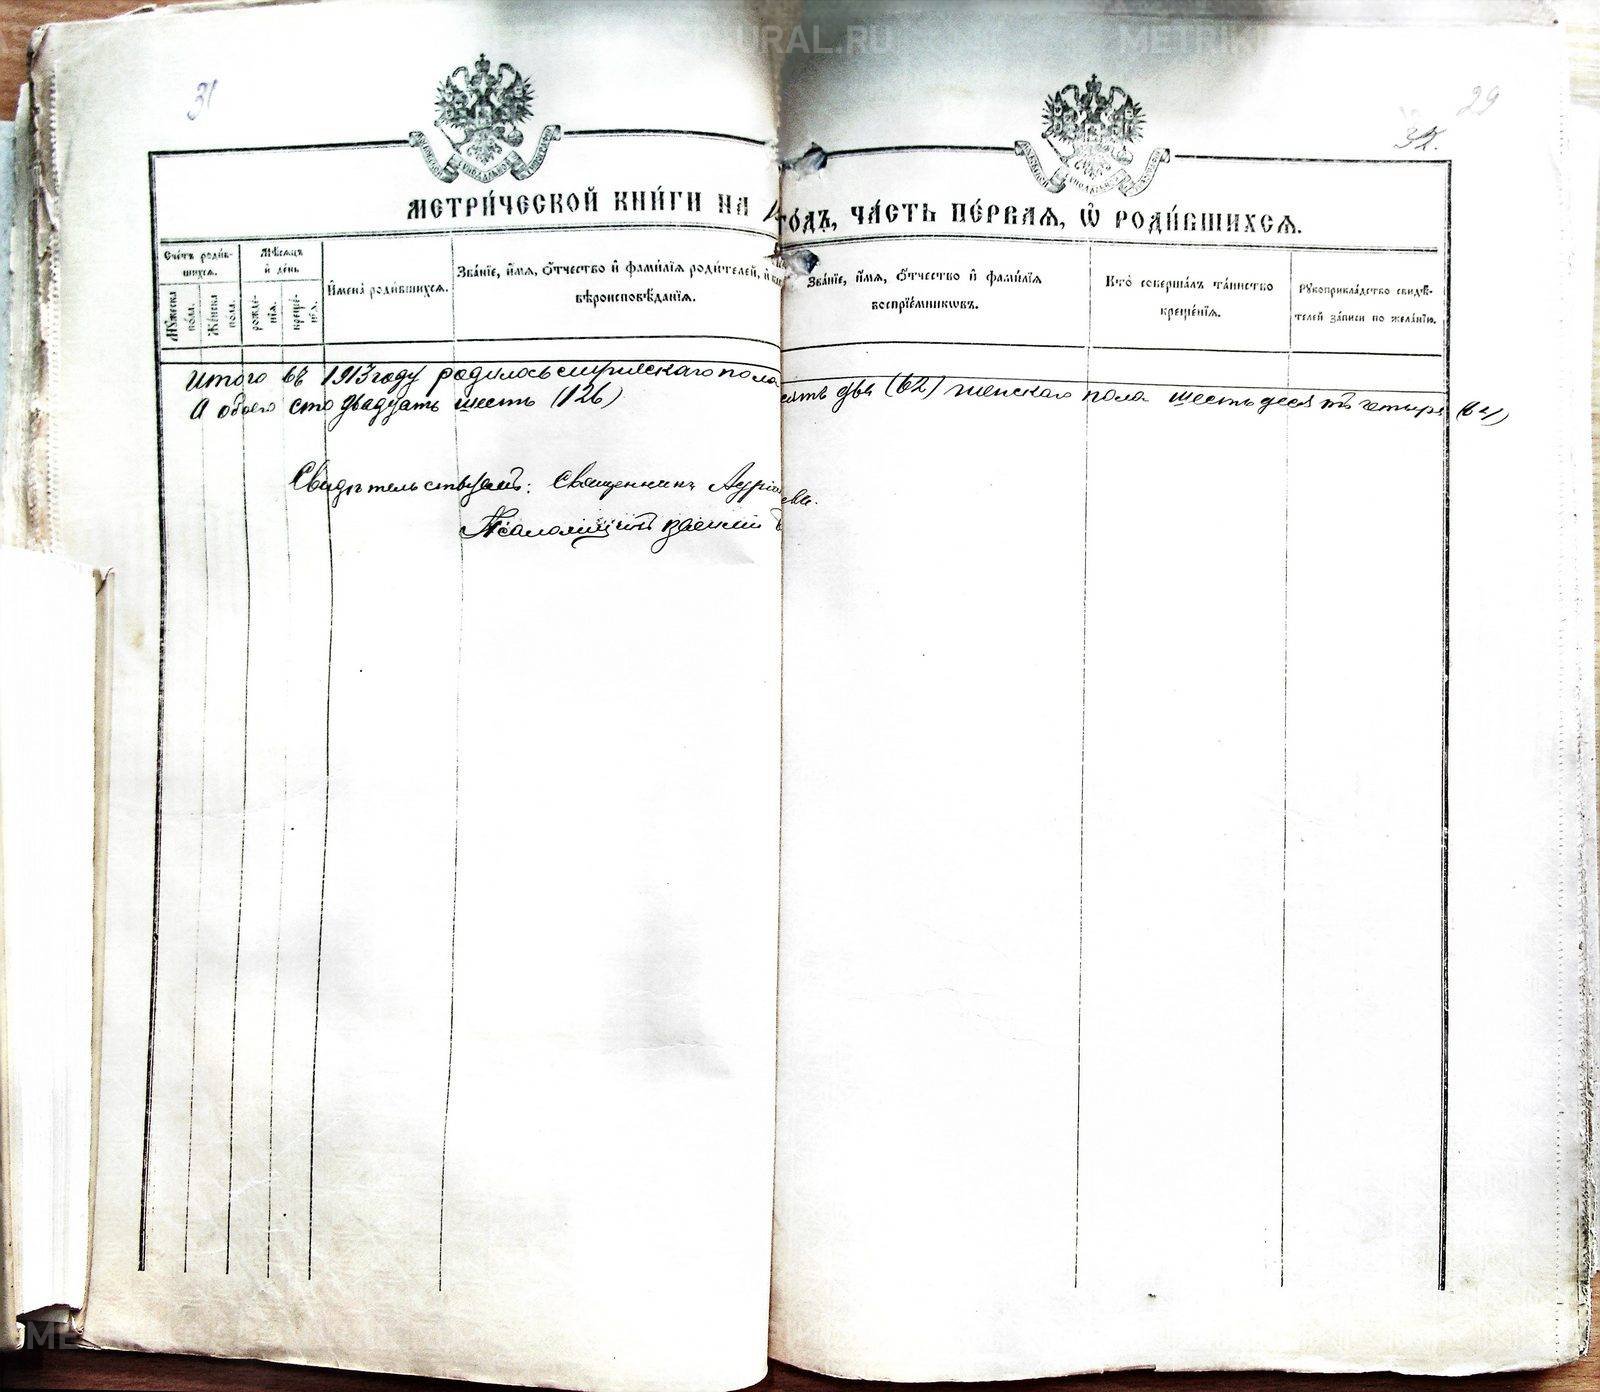 METRIKE URAL.RU METRIKE
31
29
32.
МЕТРИ́ЧЕСКОЙ КНИ́ГИ НА
ГО́ДЪ, ЧА́СТЬ ПЕ́РВАѦ, Ѡ҆ РОДИ́ВШИХСѦ.
Сче́тъ роди́в-
шихсѧ.
Мѣ́сѧцъ
и҆ де́нь
Мꙋ́жеска
по́ла.
Же́нска
по́ла.
рожде́-
нїѧ.
креще́-
нїѧ.
И҆мена̀ роди́вшихсѧ.
Зва́нїе, и҆́мѧ, ѻ҆́тчество и҆ фамѝлїѧ роди́телей, и҆
вѣроисповѣ́данїѧ.
Зва́нїе, и҆́мѧ, ѻ҆́тчество и҆ фамѝлїѧ
воспрїе́мникѡвъ.
Кто̀ соверша́лъ та́инство
креще́нїѧ.
Рꙋкоприкла́дство свидѣ́-
телей за́писи по жела́нїю.
Итого въ 1913 году родилось мужескаго пола
сятъ два (62) женскаго пола шестьдесятъ четыре (64)
А обоего сто двадцать шесть (126)
Свидѣтельствуютъ: Священникъ
Псаломщикъ